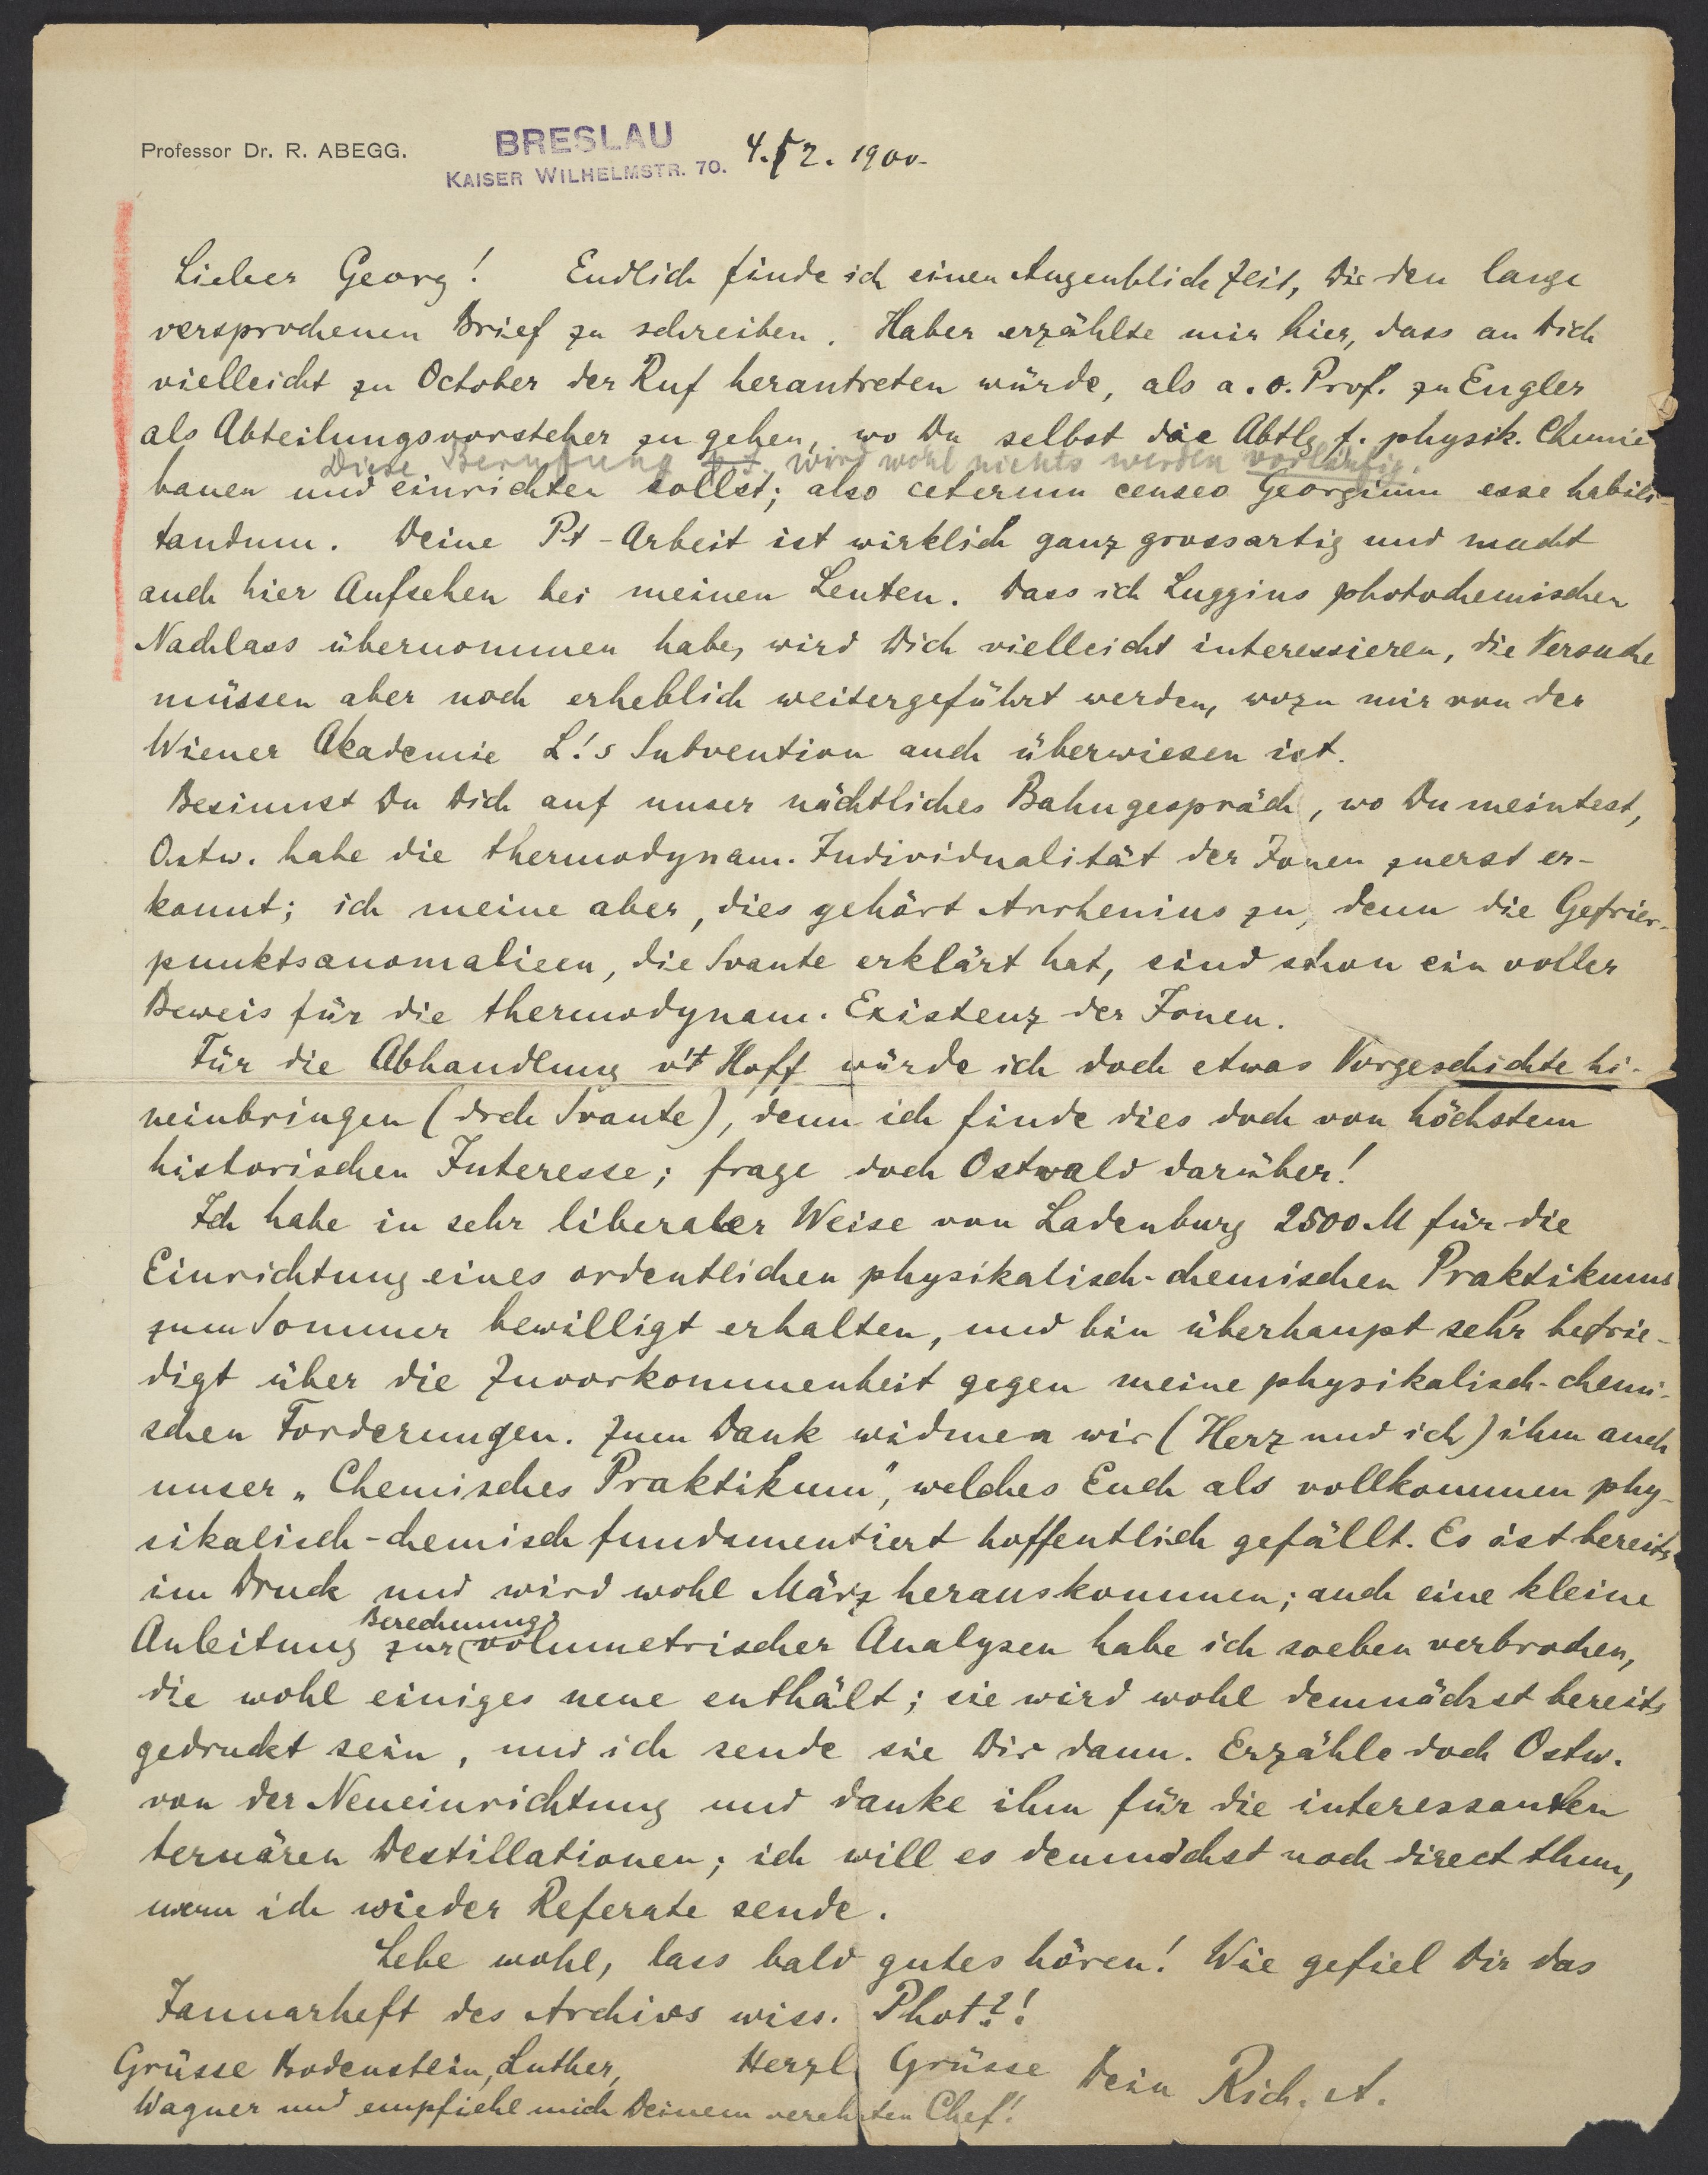 Professor Dr. R. ABEGG.
BRESLAU
KAISER WILHELMSTR. 70.
4. 2. 1900.
Lieber Georg! Endlich finde ich einen Augenblick Zeit, Dir den lange
versprochenen Brief zu schreiben. Haber erzählte mir hier, dass an Dich
vielleicht zu October der Ruf herantreten würde, als a. o. Prof. zu Engler
als Abteilungsvorsteher zu gehen, wo Du selbst die Abtlg f. physik. Chemie
Diese Berufung wird wohl nichts werden vorläufig.
bauen und einrichten sollst; also ceterum censeo Georgium esse habili-
tandum. Deine Pt-Arbeit ist wirklich ganz grossartig und macht
auch hier Aufsehen bei meinen Leuten. Dass ich Luggins photochemischen
Nachlass übernommen habe, wird Dich vielleicht interessieren, die Versuche
müssen aber noch erheblich weitergeführt werden, wozu mir von der
Wiener Akademie L!s Subvention auch überwiesen ist.
Besinnst Du Dich auf unser nächtliches Bahngespräch, wo Du meintest,
Ostw. habe die thermodynam. Individualität der Ionen zuerst er-
kannt; ich meine aber, dies gehört Arrhenius zu, denn die Gefrier-
punktsanomalieen, die Svante erklärt hat, sind schon ein voller
Beweis für die thermodynam. Existenz der Ionen.
Für die Abhandlung v't Hoff würde ich doch etwas Vorgeschichte hi-
neinbringen (drch Svante), denn ich finde dies doch von höchstem
historischen Interesse; frage doch Ostwald darüber!
Ich habe in sehr liberaler Weise von Ladenburg 2500 M für die
Einrichtung eines ordentlichen physikalisch-chemischen Praktikums
zum Sommer bewilligt erhalten, und bin überhaupt sehr befrie-
digt über die Zuvorkommenheit gegen meine physikalisch-chemi-
schen Forderungen. Zum Dank widmen wir (Herz und ich) ihm auch
unser „Chemisches Praktikum", welches Euch als vollkommen phy-
sikalisch-chemisch fundamentiert hoffentlich gefällt. Es ist bereits
im Druck und wird wohl März herauskommen; auch eine kleine
Berechnung
Anleitung zur volumetrischer Analysen habe ich soeben verbrochen,
die wohl einiges neue enthält; sie wird wohl demnächst bereits
gedruckt sein, und ich sende sie Dir dann. Erzähle doch Ostw.
von der Neueinrichtung und danke ihm für die interessanten
ternären Destillationen; ich will es demnächst noch direct thun,
wenn ich wieder Referate sende.
Lebe wohl, lass bald gutes hören! Wie gefiel Dir das
Januarheft des Archivs wiss. Phot?!
Grüsse Bodenstein, Luther,
Wagner und empfiehl mich Deinem verehrten Chef!
Herzl Grüsse Dein Rich. A.